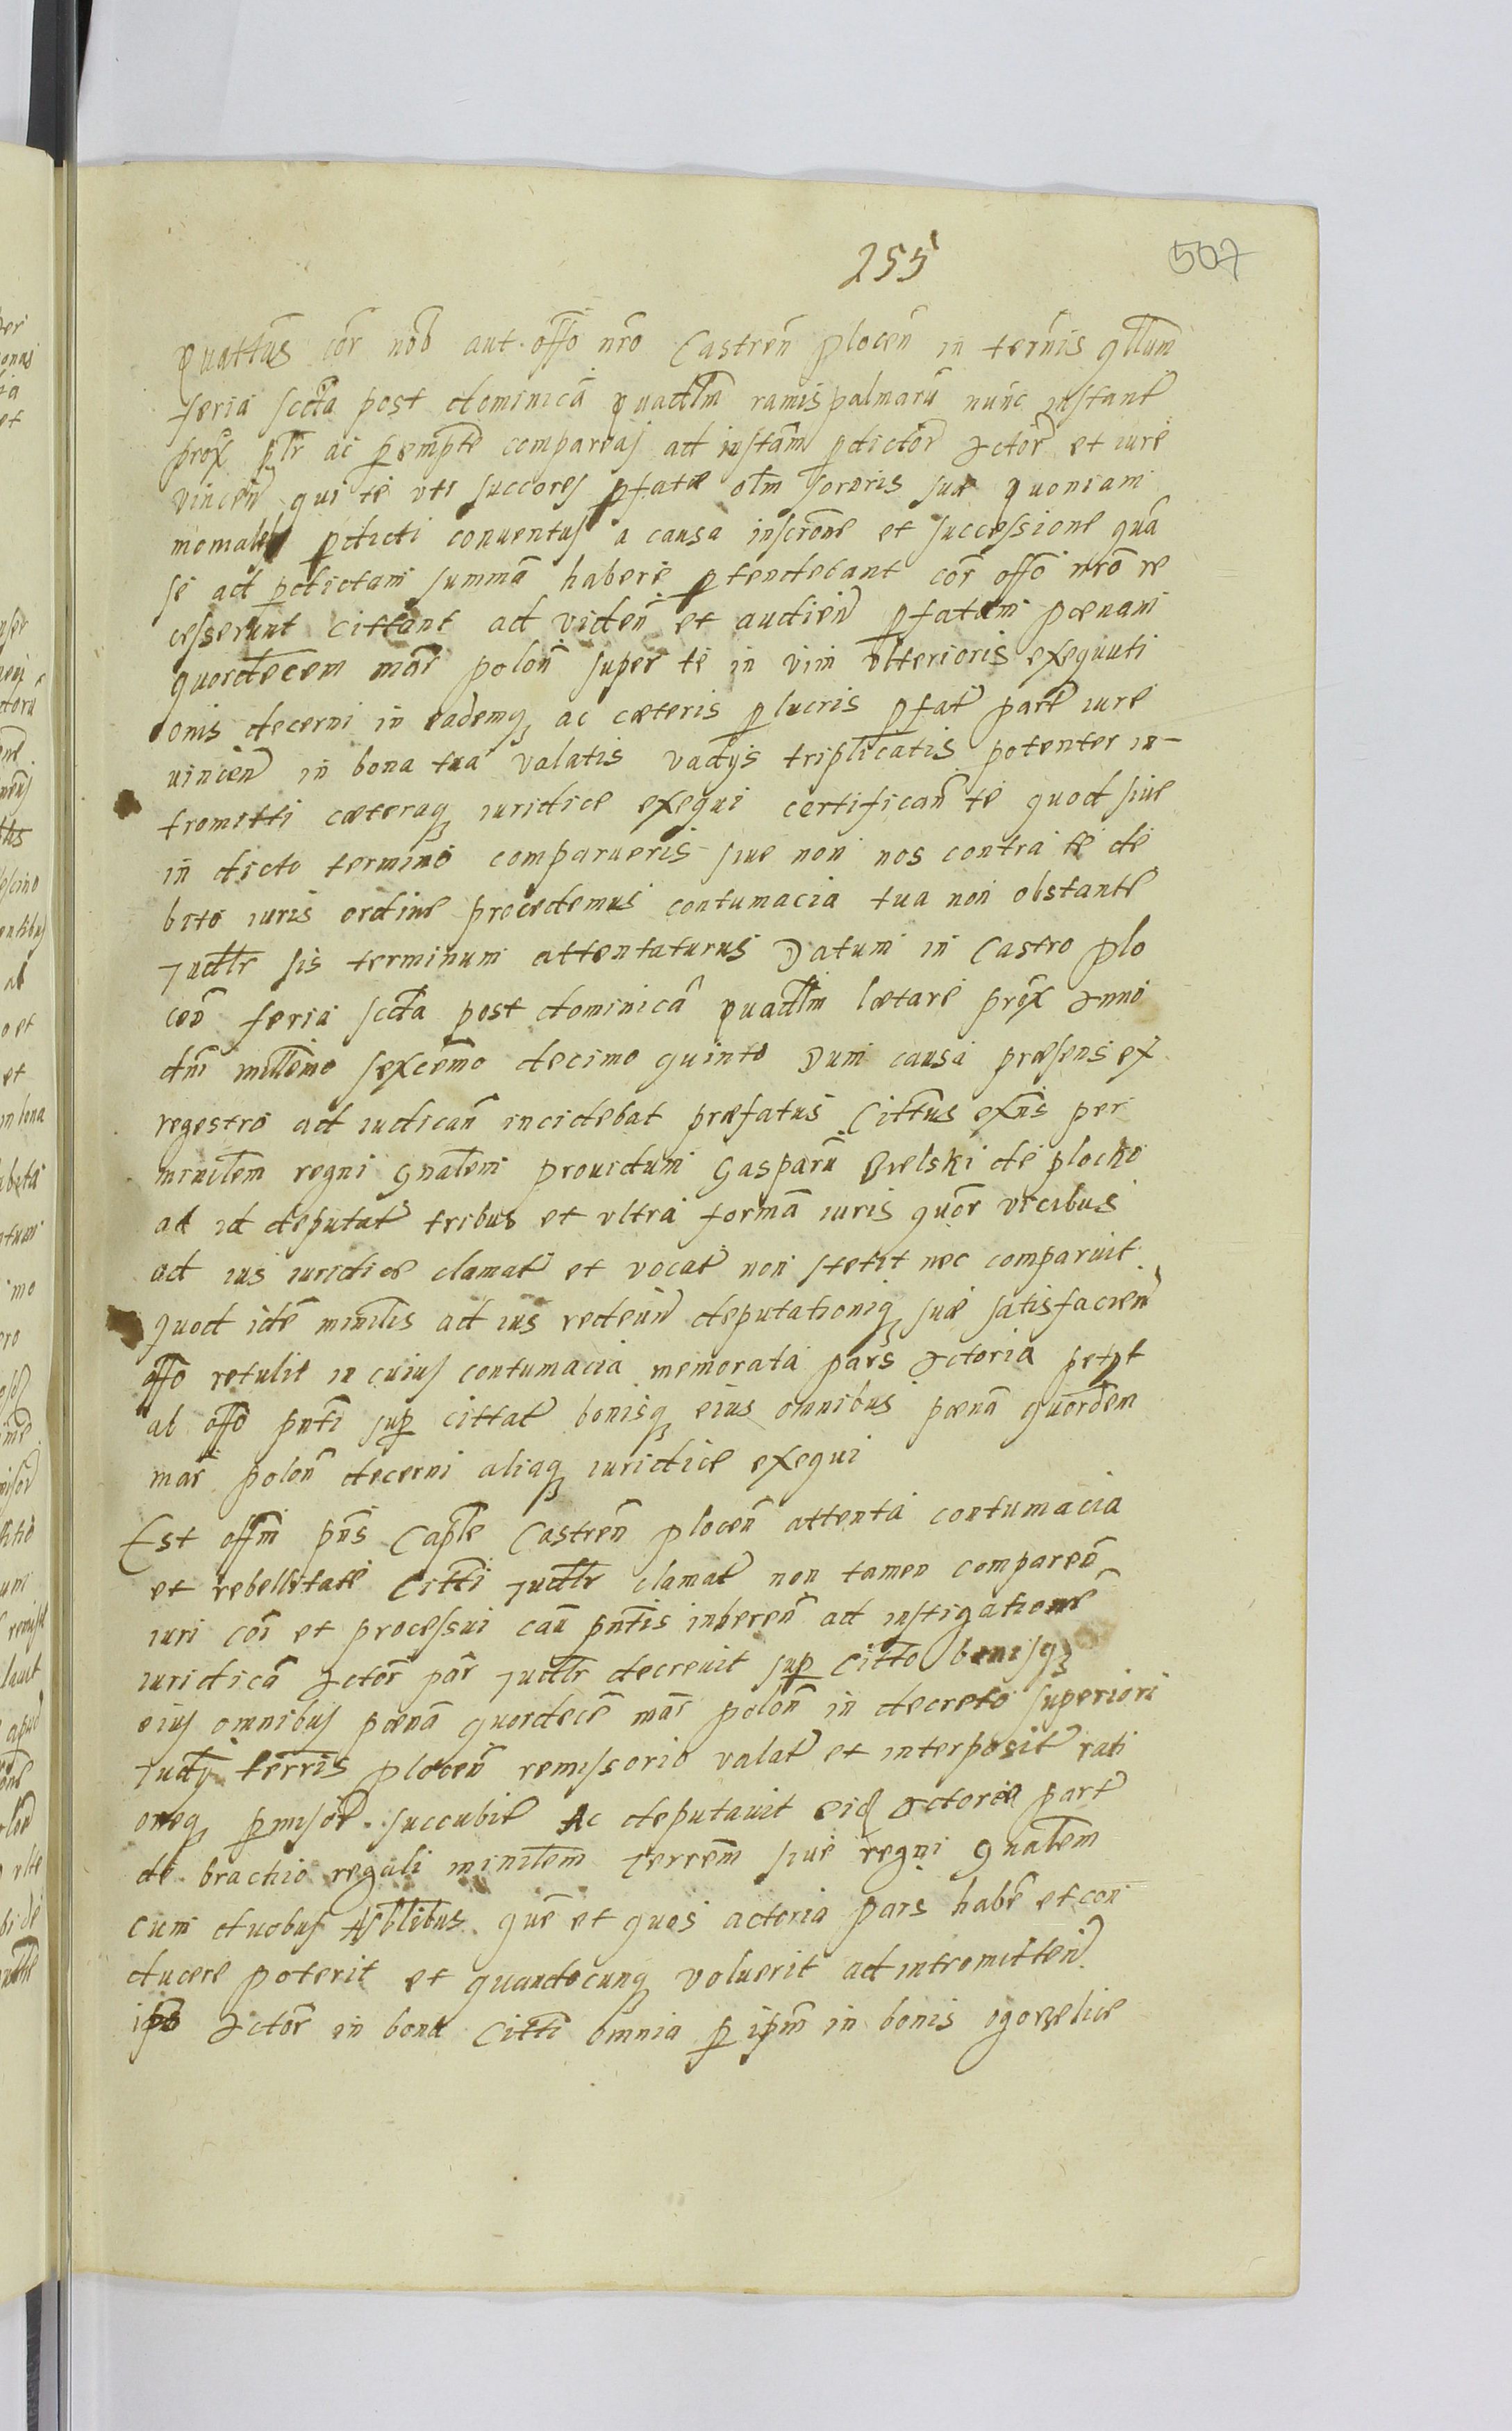 255
507
quattus cor nob aut offo nro Castren plocen in ternis qllum
feria scda post dominicā quadlm ramis palmarū nunc instant
prox pltr ac peremptē compareas ad instam pdictor Actor et iure
vincen qui te uti succores pfatæ olm sororis suæ quoniam
moniales pdicti conuentus a causa inscrone et successione quā
se ad pdictam summā habere ptendebant cor offo nro re
cesserunt cittant ad viden et audien pfatam pœnam
quordecem mar polon super te in vim vlterioris exequuti
onis decerni in eademq ac cæteris p lucris pfat part iure
vincen in bona tua valatis vadys triplicatis potenter in-
tromitti cæteraq iuridice exequi certifican te quod siue
in dicto termino comparueris siue non nos contra te de
bito iuris ordine procedemus contumacia tua non obstante
Iudltr sis terminum attentaturus Datum in Castro plo
cen feria scda post dominicā quadlm lætare prox Anno
dni millemo sexcēmo decimo quinto Dum causa præsens ex
regestro ad iudican incidebat præfatus Cittus exns per
minilem regni gnalem prouidum Gasparū Bielski de plocko
ad id deputat tribus et vltra formā iuris quor vicibus
ad ius iuridice clamat et vocat non stetit nec comparuit.
Quod idē minilis ad ius redeun deputationiq suæ satisfacien
offo retulit in cuius contumacia memorata pars Actoria petyt
ab offo pnti sup cittat bonisq eius omnibus pœnā quordem
mar polon decerni aliaq iuridice exequi
Est offm pns Caple Castren plocen attenta contumacia
et rebellitate Citti Iudltr clamat non tamen comparen
iuri coi et processui cau pntis inheren ad instigatione
iuridicā Actor par Iudltr decreuit sup Citto bonisq
eius omnibus pœnā quordecē mar polon in decreto superiori
Iudy terris plocen remissorio valat et interposit rati
oneq pmisor succubit Ac deputauit eid Actoriæ part
de brachio regali minilem Terrem siue regni gnalem
cum duobus Nblibus quē et quos actoria pars habē et con
ducere poterit et quandocunq voluerit ad intromitten
ipso Actor in bona Citti omnia p ipm in bonis ogorzelice